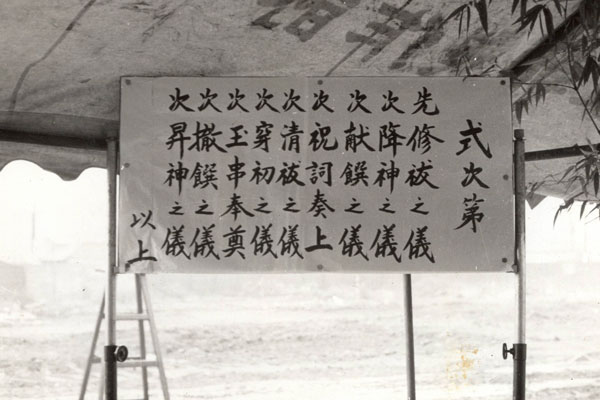 式次第
先修祓之儀
次降神之儀
次献饌之儀
次祝詞奏上
次清祓之儀
次穿初之儀
次玉串奉奠
次撤饌之儀
次昇神之儀
以上